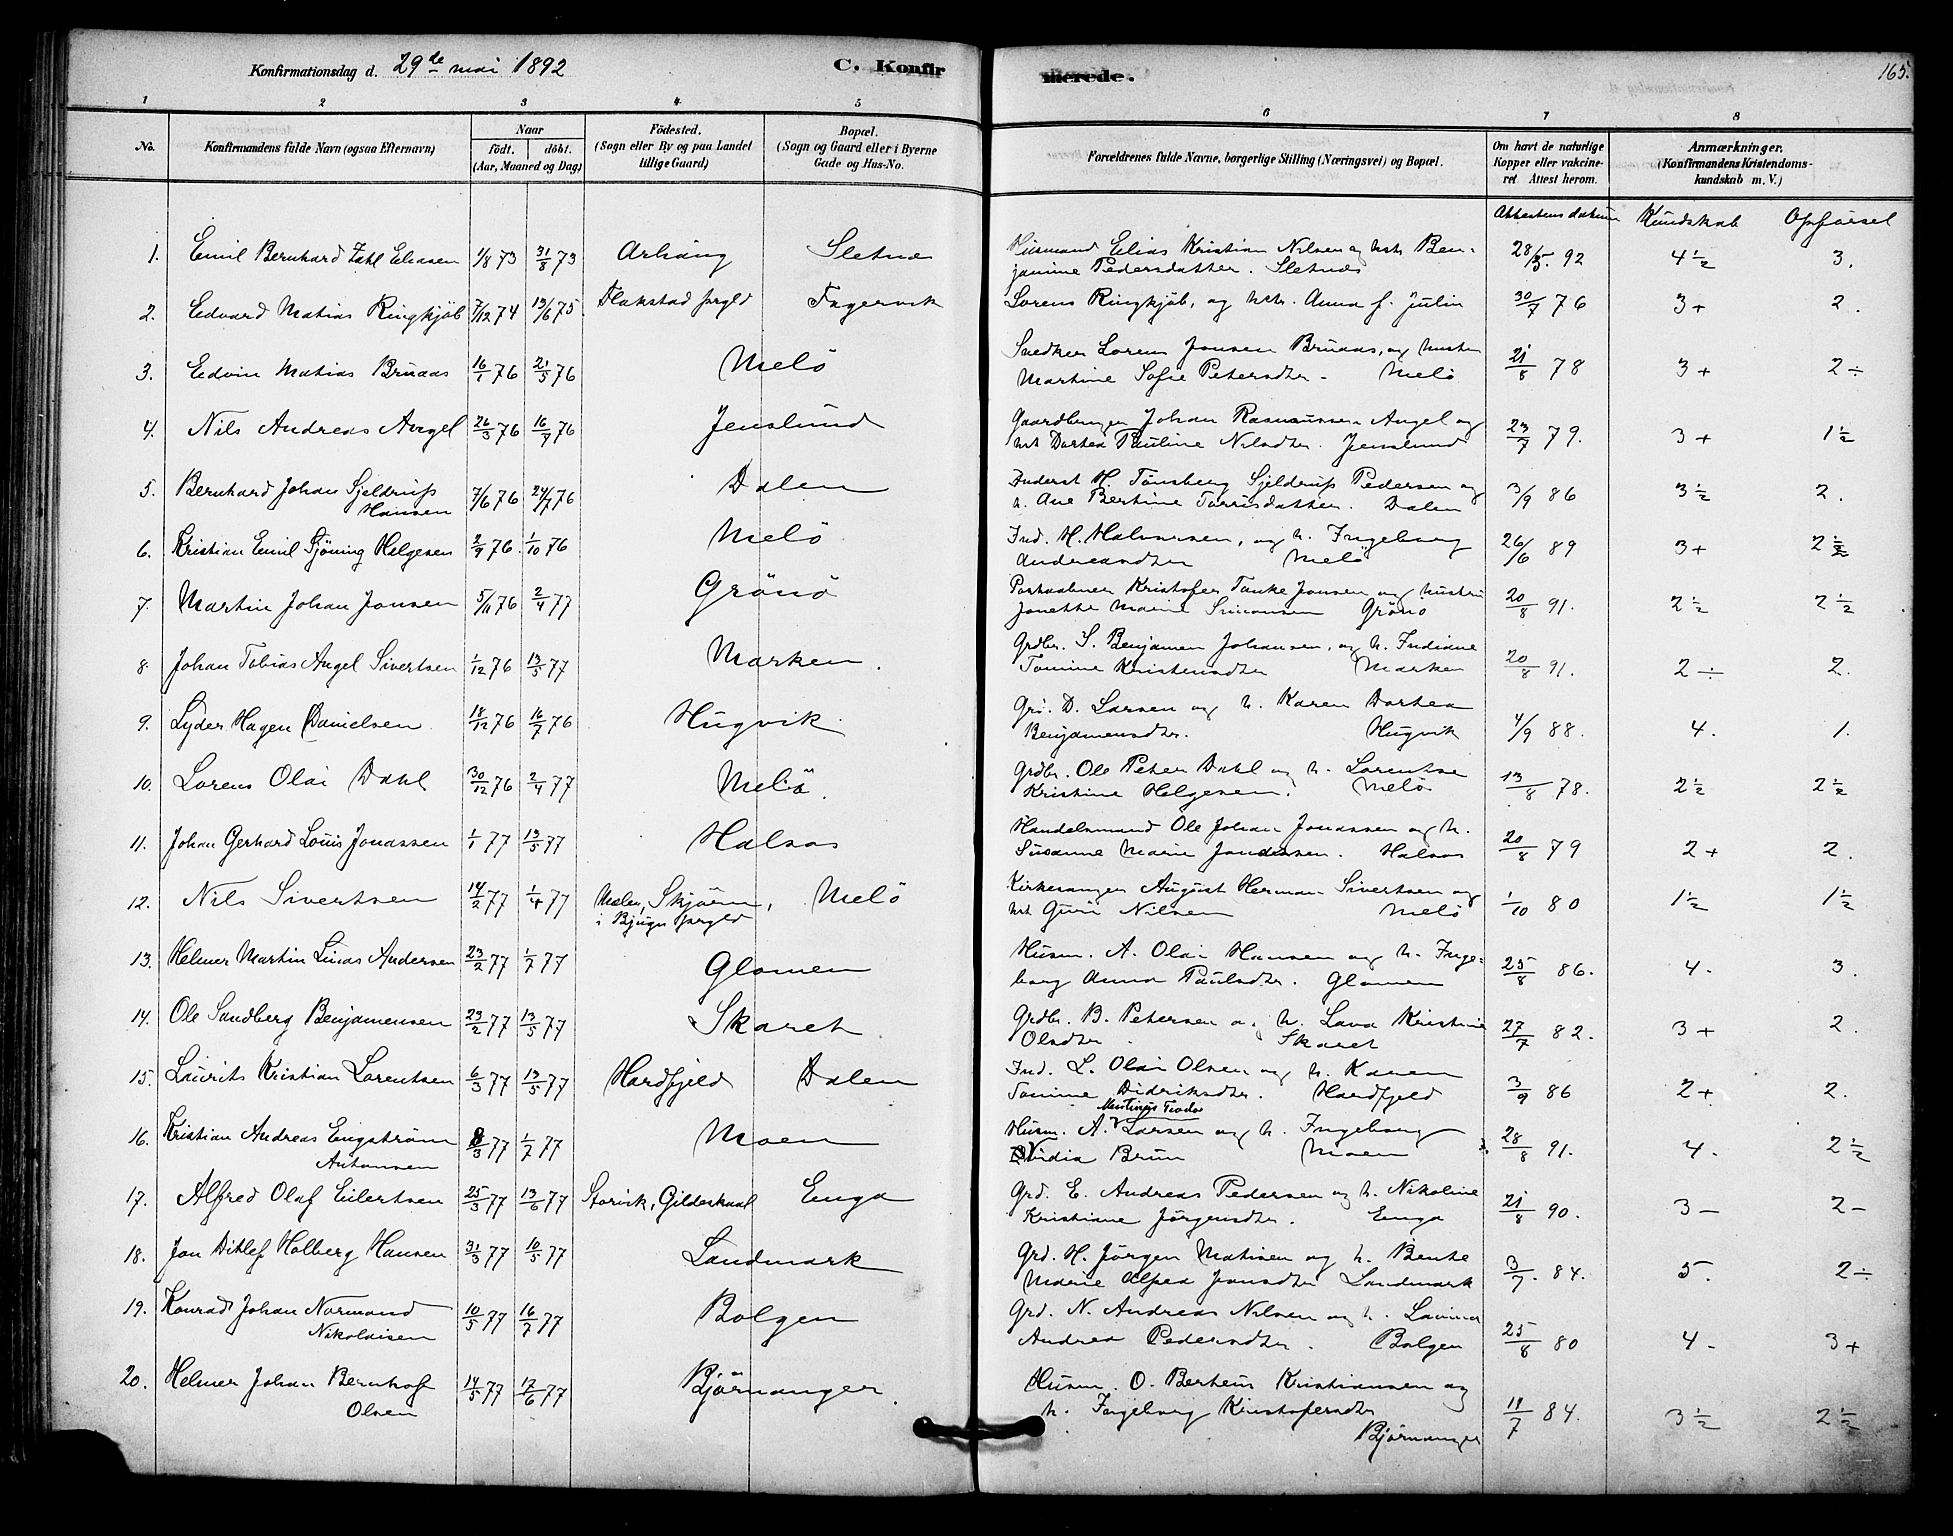 Konfirmationsdag d. 29de mai 1892 C. Konfirmerede. 165.
1 2 3 4 5 6 7 8
No.
Konfirmandens fulde Navn (ogsaa Efternavn)
Naar
født. døbt.
(Aar, Maaned og Dag)
Fødested.
(Sogn eller By og paa Landet
tillige Gaard)
Bopæl.
(Sogn og Gaard eller i Byerne
Gade og Hus-No.
Forældrenes fulde Navne, borgerlige Stilling (Næringsvei) og Bopæl.
Om havt de naturlige
Kopper eller vakcine-
ret. Attest herom.
Anmærkninger.
(Konfirmandens Kristendoms-
kundskab m. V.)
Attestens datum Kundskab Opførsel
1. Emil Bernhard Zahl Eliasen 1/8 73 31/8 73 Arhaug Sletnes
Husmand Elias Kristian Nilsen og hst. Ben-
jamine Pedersdatter. Sletnes 28/5. 92 4 1/2 3.
2. Edvard Matias Ringkjøb 7/12 74 13/6 75. Flakstad prgld Fagervik
Lorens Ringkjøb, og hstr. Anna f. Julin 30/7 76 3+ 2.
3. Edvin Matias Bruaas 16/1 76 21/5 76 Melö
Snedker Lorens Jonsen Bruaas, og hustru
Martine Sofie Petersdtr. Melö 21/8 78 3+ 2÷
4. Nils Andreas Angel 26/3 76 16/7 76 Jenslund
Gaardbruger Johan Rasmussen Angel og
hst Dortea Pauline Nilsdtr. Jenslund 23/7 79. 3+ 1 1/2
5. Bernhard Johan Sjeldrup
Hansen 7/6 76 24/7 76 Dalen
Inderst H. Tönsberg Sjeldrup Pedersen og
h. Ane Bertine Torrisdatter. Dalen 3/9 86 3 1/2 2.
6. Kristian Emil Sjöning Helgesen 2/9 76. 1/10 76 Melö
Ind. H. Halvorsen, og h. Ingeborg
Andreasdtr Melö 26/6 89 3+ 2 1/2
7. Martin Johan Jonsen 5/11 76 2/4 77 Grönö
Postaabner Kristofer Tanke Jonsen og hustru
Janette Marie Simonsen Grönö 20/8 91. 2 1/2 2 1/2
8. Johan Tobias Angel Sivertsen 1/12 76 13/5 77 Marken.
Grdbr. S. Benjamin Johansen, og h. Indiane
Tomine Kristensdtr Marken 20/8 91. 2÷ 2.
9. Lyder Hagen Danielsen 18/12 76 16/7 76 Hugvik
Grd. D. Larsen og h. Karen Dortea
Benjamensdtr. Hugvik 4/9 88. 4. 1.
10. Lorens Olai Dahl 30/12 76 2/4 77 Melö.
Grdbr. Ole Peter Dahl og h. Lorentse
Kristine Helgesen. Melö 13/8 78. 2 1/2 2 1/2
11. Johan Gerhard Louis Jonassen 1/1 77 13/5 77 Halsos
Handelsmand Ole Johan Jonassen og h.
Susanne Marie Jonassen. Halsos 20/8 79 2+ 2.
12. Nils Sivertsen 14/2 77 1/4 77 Mælen, Skjörn,
i Bjugn prgld Melö
Kirkesanger August Herman Sivertsen og
hst Guri Nilsen Melö 1/10 80 1 1/2 1 1/2
13. Helmer Martin Linas Andersen 23/2 77 1/7 77 Glomen
Husm. A. Olai Hansen og h. Inge-
borg Anna Paulsdtr. Glomen 25/8 86. 4. 3.
14. Ole Sandberg Benjamensen 23/2 77 13/5 77 Skaret
Grdbr. B. Petersen og h. Lava Kristine
Olsdtr. Skaret 27/7 82. 3+ 2.
15. Laurits Kristian Lorentsen 6/3 77 13/5 77 Hardfjeld Dalen
Ind. L. Olai Olsen og h. Karen
Tomine Didriksdtr. Hardfjeld 3/9 86 2+ 2.
16. Kristian Andreas Engström
Antonsen 8/3 77 1/7 77 Moen
Martinus Teodor
Husm. A. Larsen og h. Ingeborg
Brun Moen 28/8 91. 4. 2 1/2
17. Alfred Olaf Eilertsen 25/3 77 13/6 77 Storvik, Gildeskaal Enga
Grd. E. Andreas Pedersen og h. Nikoline
Kristiane Jörgensdtr. Enga 21/8 90. 3— 2—
18. Jon Ditlef Holberg Hansen 31/3 77 10/5 77 Landmark
Grd. H. Jörgen Matisen og h. Bente
Marie Alfea Jonsdtr Landmark 3/7. 84. 5. 2÷
19. Konrad Johan Normand
Nikolaisen 10/5 77 16/7 77 Bolgen
Grd. N. Andreas Nilsen og h. Lavina
Andrea Pedersdtr. Bolgen 25/8 80 4. 3+
20. Helmer Johan Bernhof
Olsen 14/5 77 17/6 77 Björnanger.
Husm. O. Berteus Kristiansen og
h. Ingeborg Kristofersdtr
Björnanger 11/7 84. 3 1/2 2 1/2